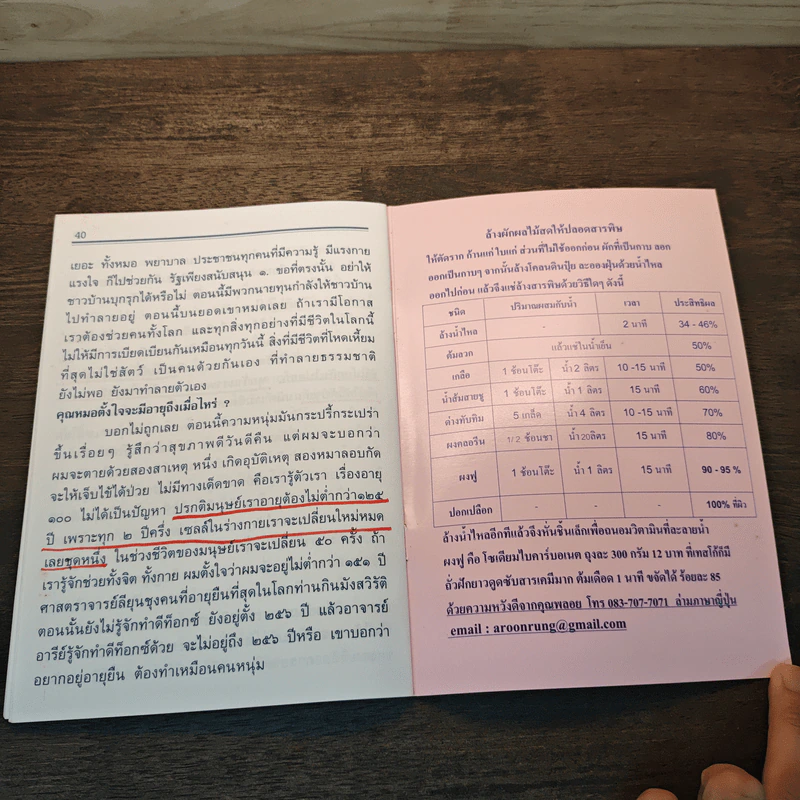 40
เยอะ ทั้งหมอ พยาบาล ประชาชนทุกคนที่มีความรู้ มีแรงกาย
แรงใจ ก็ไปช่วยกัน รัฐเพียงสนับสนุน ๑. ขอที่ตรงนั้น อย่าให้
ชาวบ้านบุกรุกได้หรือไม่ ตอนนี้มีพวกนายทุนกำลังให้ชาวบ้าน
ไปทำลายอยู่ ตอนนี้บนยอดเขาหมดเลย ถ้าเรามีโอกาส
เราต้องช่วยคนทั้งโลก และทุกสิ่งทุกอย่างที่มีชีวิตในโลกนี้
ไม่ให้มีการเบียดเบียนกันเหมือนทุกวันนี้ สิ่งที่มีชีวิตที่โหดเหี้ยม
ที่สุดไม่ใช่สัตว์ เป็นคนด้วยกันเอง ที่ทำลายธรรมชาติ
ยังไม่พอ ยังมาทำลายตัวเอง
คุณหมอตั้งใจจะมีอายุถึงเมื่อไหร่ ?
บอกไม่ถูกเลย ตอนนี้ความหนุ่มมันกระปรี้กระเปร่า
ขึ้นเรื่อยๆ รู้สึกว่าสุขภาพดีวันดีคืน แต่ผมจะบอกว่า
ผมจะตายด้วยสองสาเหตุ หนึ่ง เกิดอุบัติเหตุ สองหมาลอบกัด
จะให้เจ็บไข้ได้ป่วย ไม่มีทางเด็ดขาด คือเรารู้ตัวเรา เรื่องอายุ
๑๐๐ ไม่ได้เป็นปัญหา ปรกติมนุษย์เราอายุต้องไม่ต่ำกว่า๑๒๕
ปี เพราะทุก ๒ ปีครึ่ง เซลล์ในร่างกายเราจะเปลี่ยนใหม่หมด
เลยชุดหนึ่ง ในช่วงชีวิตของมนุษย์เราจะเปลี่ยน ๕๐ ครั้ง ถ้า
เรารู้จักช่วยทั้งจิต ทั้งกาย ผมตั้งใจว่าผมจะอยู่ไม่ต่ำกว่า ๑๕๑ ปี
ศาสตราจารย์ลียุนชุงคนที่อายุยืนที่สุดในโลกท่านกินมังสวิรัติ
ตอนนั้นยังไม่รู้จักทำดีท็อกซ์ ยังอยู่ตั้ง ๒๕๖ ปี แล้วอาจารย์
อารีย์รู้จักทำดีท็อกซ์ด้วย จะไม่อยู่ถึง ๒๕๖ ปีหรือ เขาบอกว่า
อยากอยู่อายุยืน ต้องทำเหมือนคนหนุ่ม
ล้างผักผลไม้สดให้ปลอดสารพิษ
ให้คัดราก ก้านแก่ ใบแก่ ส่วนที่ไม่ใช้ออกก่อน ผักที่เป็นกาบ ลอก
ออกเป็นกาบๆ จากนั้นล้างโคลนดินปุ๋ย ละอองฝุ่นด้วยน้ำไหล
ออกไปก่อน แล้วจึงแช่ล้างสารพิษด้วยวิธีใดๆ ดังนี้
ชนิด ปริมาณผสมกับน้ำ เวลา ประสิทธิผล
ล้างน้ำไหล - 2 นาที 34 - 46%
ต้มลวก แล้วแช่ในน้ำเย็น 50%
เกลือ 1 ช้อนโต๊ะ น้ำ 2 ลิตร 10 -15 นาที 50%
น้ำส้มสายชู 1 ช้อนโต๊ะ น้ำ 1 ลิตร 15 นาที 60%
ด่างทับทิม 5 เกล็ด น้ำ 4 ลิตร 10 -15 นาที 70%
ผงคลอรีน 1/2 ช้อนชา น้ำ20ลิตร 15 นาที 80%
ผงฟู 1 ช้อนโต๊ะ น้ำ 1 ลิตร 15 นาที 90 - 95 %
ปอกเปลือก - - - 100% ที่ผิว
ล้างน้ำไหลอีกทีแล้วจึงหั่นชิ้นเล็กเพื่อถนอมวิตามินที่ละลายน้ำ
ผงฟู คือ โซเดียมไบคาร์บอเนต ถุงละ 300 กรัม 12 บาท ที่เทสโก้ก็มี
ถั่วฝักยาวดูดซับสารเคมีมาก ต้มเดือด 1 นาที ขจัดได้ ร้อยละ 85
ด้วยความหวังดีจากคุณพลอย โทร 083-707-7071 ล่ามภาษาญี่ปุ่น
email : aroonrung@gmail.com